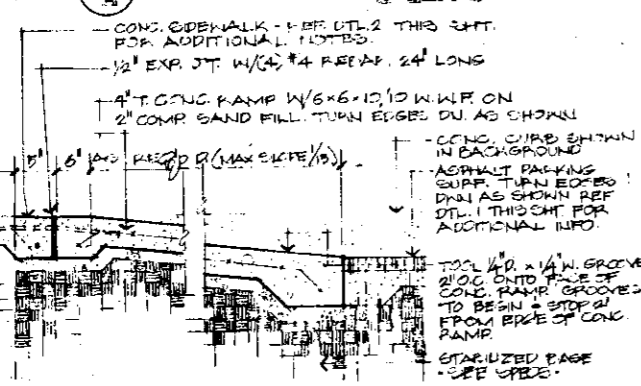 CONC. SIDEWALK - REF. DTL. 2 THIS SHT.
FOR ADDITIONAL NOTES.
1/2" EXP. JT. W/(4) #4 REBAR, 24" LONG
4" T. CONC. RAMP W/6x6-10/10 W.W.F. ON
2" COMP. SAND FILL. TURN EDGES DN. AS SHOWN
CONC. CURB SHOWN
IN BACKGROUND
5" 6" AS REQ'D (MAX SLOPE
ASPHALT PARKING
SURF. TURN EDGES
DWN AS SHOWN REF
DTL. 1 THIS SHT FOR
ADDITIONAL INFO.
TOOL 1/4"D. x 1/4"W. GROOVE
2" O.C. ONTO FACE OF
CONC. RAMP. GROOVES
TO BEGIN & STOP 2"
FROM EDGE OF CONC.
RAMP.
STABILIZED BASE
- SEE SPECS -